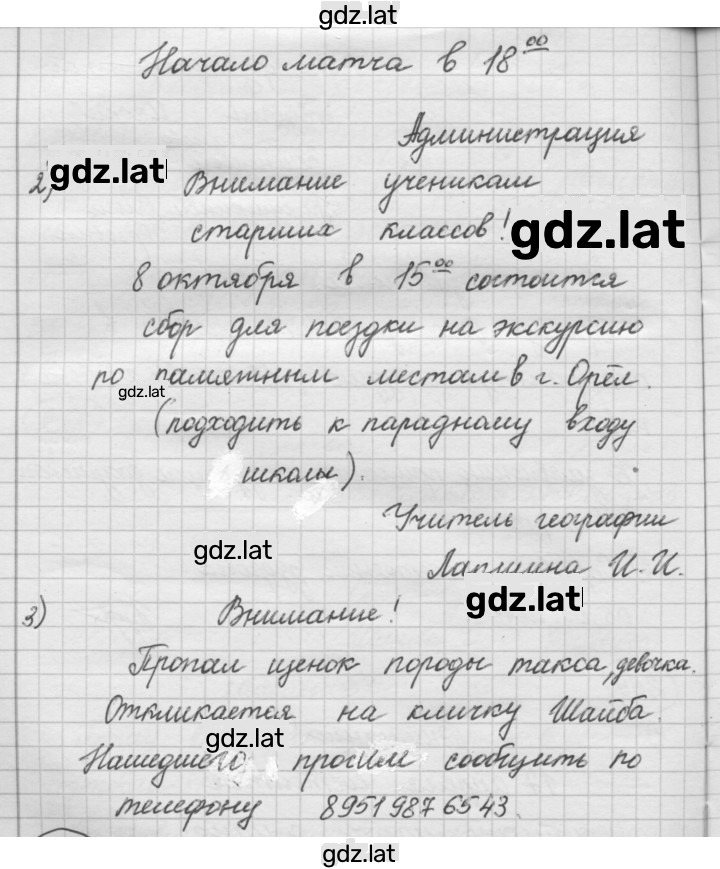 gdz.lat
Начало матча в 18⁰⁰
Администрация
gdz.lat
2) Внимание ученикам
старших классов!
gdz.lat
8 октября в 15⁰⁰ состоится
сбор для поездки на экскурсию
по памятным местам в г. Орёл.
gdz.lat
(подходить к парадному входу
школы).
Учитель географии
gdz.lat
Лапшина И. И.
gdz.lat
3) Внимание!
Пропал щенок породы такса, девочка.
Откликается на кличку Шайба.
gdz.lat
Нашедшего просим сообщить по
телефону 89519876543.
gdz.lat